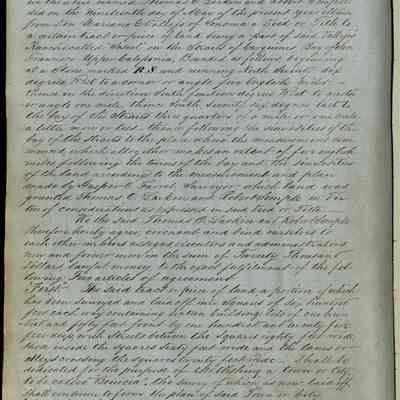 we the undersigned Thomas O. Larkin and Robert Semple
did on the Nineteenth day of May of the present year obtain
from Don Mariano G Vallejo of Sonoma a Deed or Title to
a certain tract or piece of land being a part of said Vallejo's
Rancho called "Suscol" on the Straits of Carquines Bay of San
Francisco Upper California, Bounded as follows beginning
at a Stone marked R.S. and running North Seventy six
degrees West to a corner or angle five English miles
thence in the direction South fourteen degrees West to another
or angle one mile thence South Seventy six degrees East to
the Bay of the Straits three quarters of a mile or one mile
a little more or less, thence following the sinuosities of the
bay of the Straits to the place where the measurement com-
menced which altogether makes an extent of five english
miles following the turns of the bay and the sinuosities
of the land according to the measurement and plan
made by Jasper O Farrel, Surveyor which land was
granted Thomas O. Larkin and Robert Semple in Vir-
tue of considerations as expressed in said Deed or Title.
We the said Thomas O Larkin and Robert Semple
therefore hereby agree, covenant and bind ourselves to
each other our heirs assigns executors and administrators
now and forever more in the sum of Twenty Thousand
Dollars Lawful money to the exact fulfilment of the fol-
lowing Five articles of agreement
"First" The said tract or piece of land a portion of which
has been surveyed and laid off into Squares of Six hundred
feet each way containing sixteen building lots of one hun-
dred and fifty feet front by one hundred and twenty five
feet deep, with Streets between the Squares eighty feet wide,
those inside the squares Sixty feet wide and the lanes or
alleys crossing the squares twenty feet wide. Shall be
dedicated for the purpose of establishing a town or City
to be called "Benicia", the survey of which as now laid off
shall continue to form the plan of said Town or City